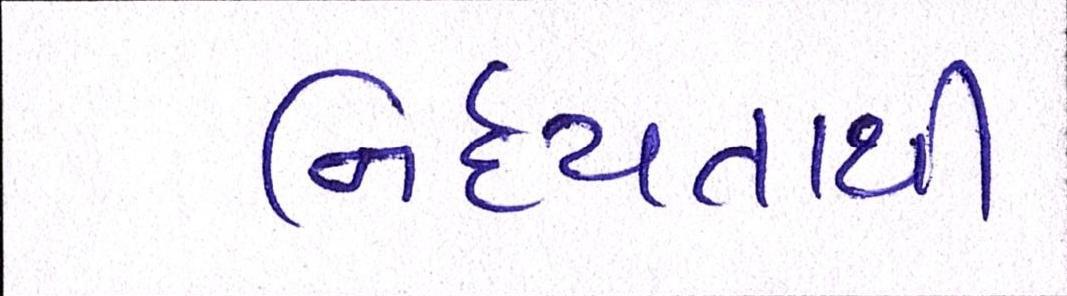 નિર્દયતાથી